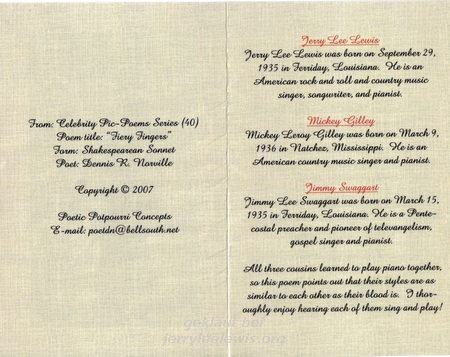 From: Celebrity Pic-Poems Series (40)
Poem title: "Fiery Fingers"
Form: Shakespearean Sonnet
Poet: Dennis R. Norville
Copyright © 2007
Poetic Potpourri Concepts
E-mail: poetdn@bellsouth.net
Jerry Lee Lewis
Jerry Lee Lewis was born on September 29,
1935 in Ferriday, Louisiana. He is an
American rock and roll and country music
singer, songwriter, and pianist.
Mickey Gilley
Mickey Leroy Gilley was born on March 9,
1936 in Natchez, Mississippi. He is an
American country music singer and pianist.
Jimmy Swaggart
Jimmy Lee Swaggart was born on March 15,
1935 in Ferriday, Louisiana. He is a Pente-
costal preacher and pioneer of televangelism,
gospel singer and pianist.
All three cousins learned to play piano together,
so this poem points out that their styles are as
similar to each other as their blood is. I thor-
oughly enjoy hearing each of them sing and play!
geklaut bei
jerryleelewis.org